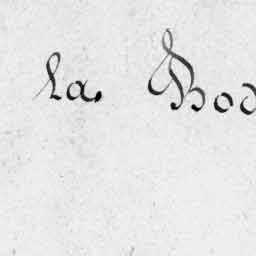 La Bod